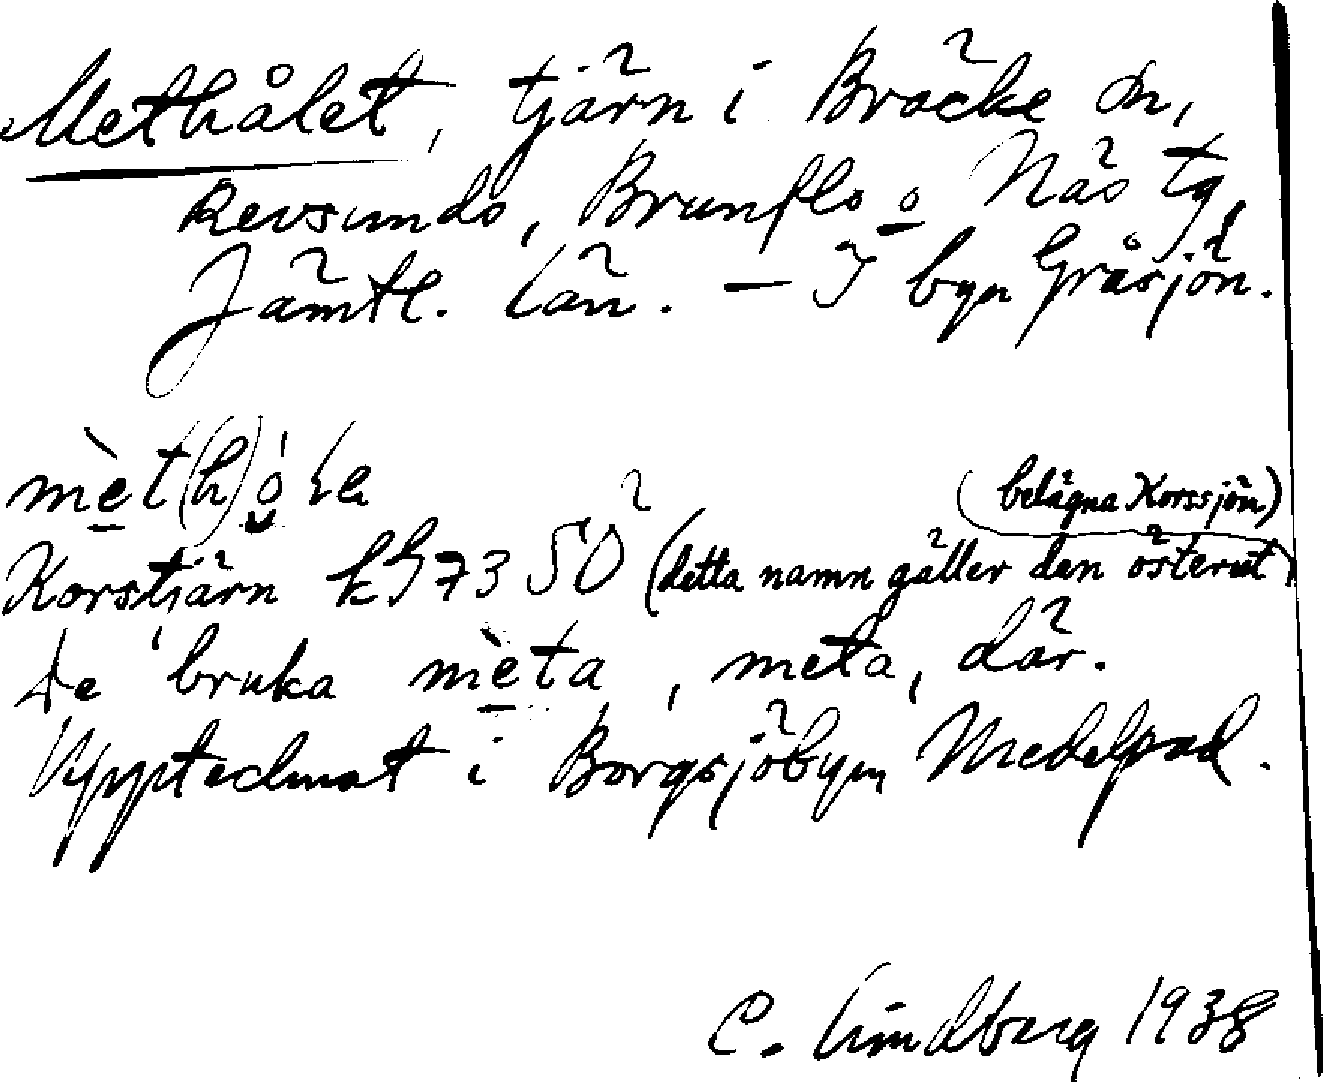 Methålet, tjärn i Bräcke sn,
Revsunds, Brunflo o Näs tg,
Jämtl. län. – I byn Gråsjön.
mèt(h)ó̯le
(belägna Korssjön)
Korstjärn kS 73 SÖ (detta namn gäller den österut
De bruka mèta, meta, där.
Upptecknat i Borgsjöbyn Medelpad.
C. Lindberg 1938